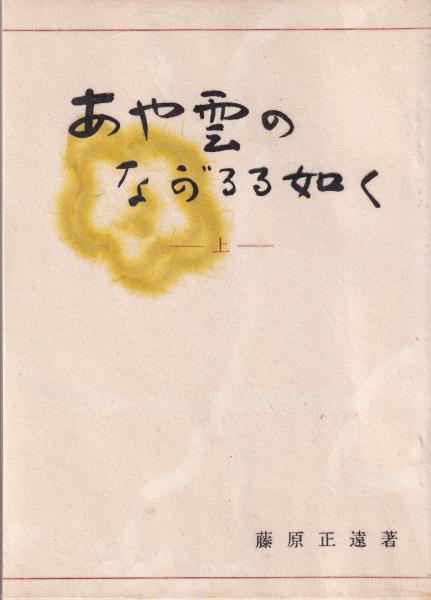 あや雲の
ながるる如く
上
藤原正遠著